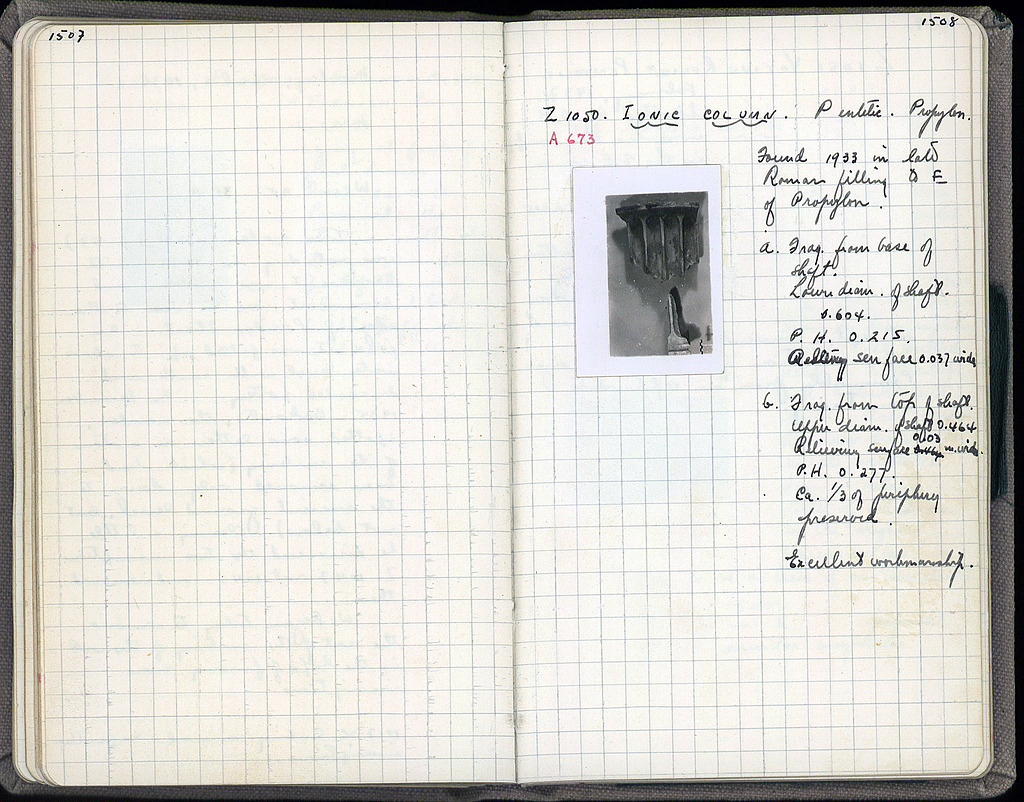 1507
1508
Z 1050. IONIC COLUMN. Pentelic. Propylon.
A 673
Found 1933 in late
Roman filling to E
of Propylon.
a. Frag. from base of
shaft.
Lower diam. of shaft.
0.604.
P. H. 0.215.
Relieving surface 0.037 wide
b. Frag. from top of shaft.
Upper diam. of shaft 0.464
0.03
Relieving surface m. wide.
P.H. 0.277.
Ca. 1/3 of periphery
preserved.
Excellent workmanship.